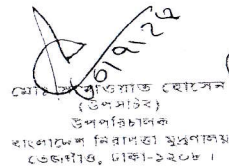 ৩১।১২
মোঃ হোসেন
(উপসচিব)
উপপরিচালক
বাংলাদেশ নিরাপত্তা মুদ্রণালয়
তেজগাঁও, ঢাকা-১২০৮।